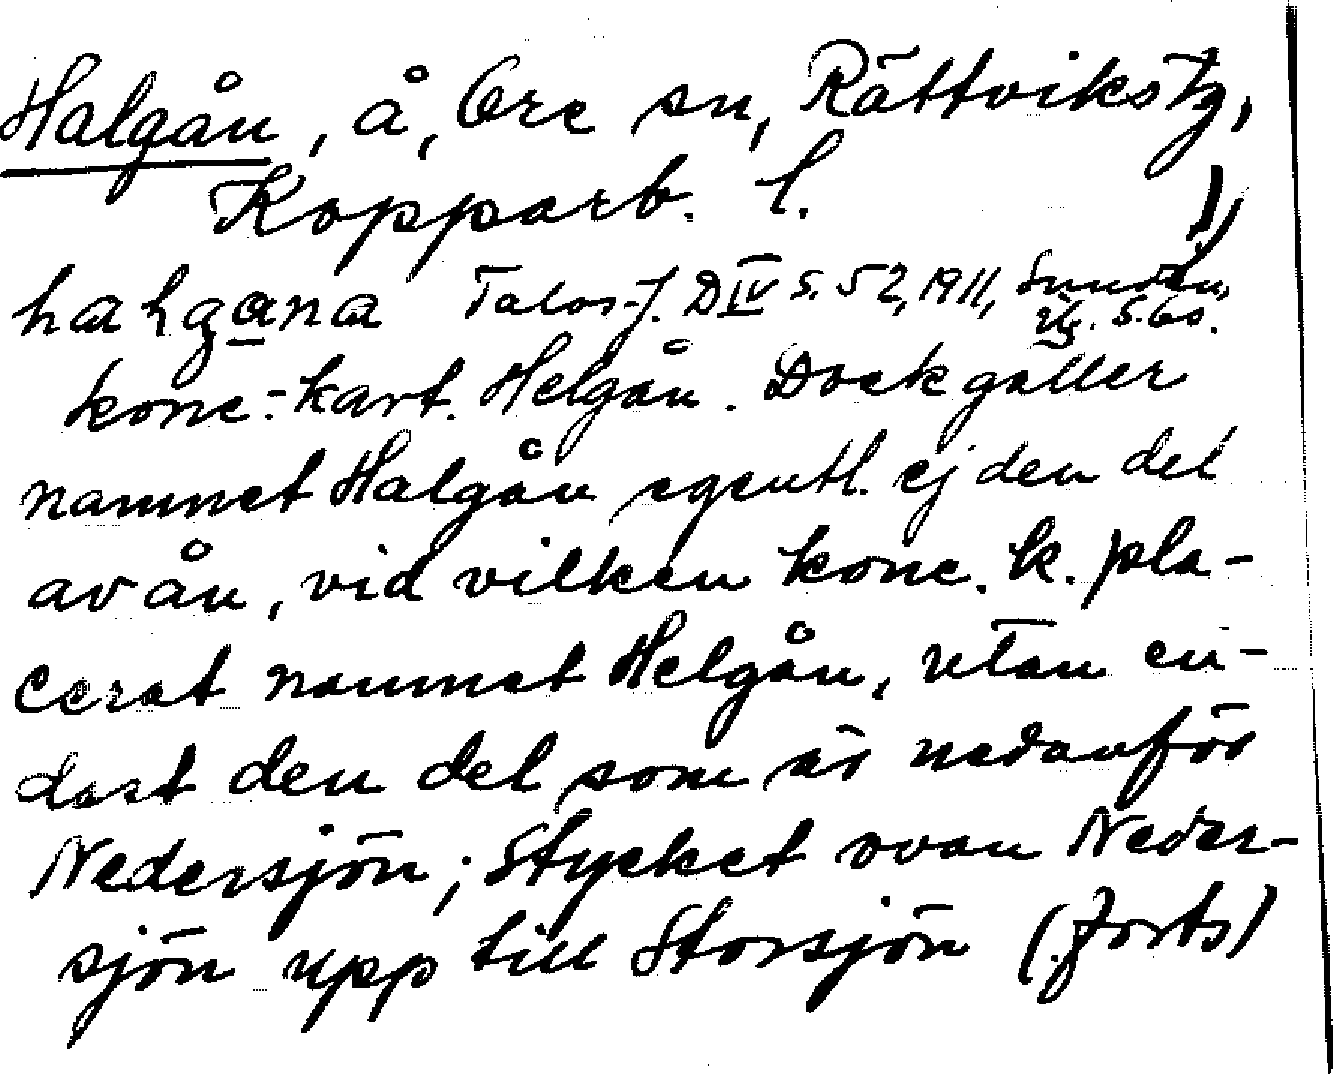 Halgån, å, Ore sn, Rättvikstg,
Kopparb. l.
halgana Talosj. D IV S. 52, 1911, Sundén,
S. 60.
konc.-kart. Helgån. Dock gäller
namnet Halgån egentl. ej den del
av ån, vid vilken konc. k. pla-
cerat namnet Helgån, utan en-
dast den del som är nedanför
Nedersjön; Stycket ovan Neder-
sjön upp till Storsjön (forts)